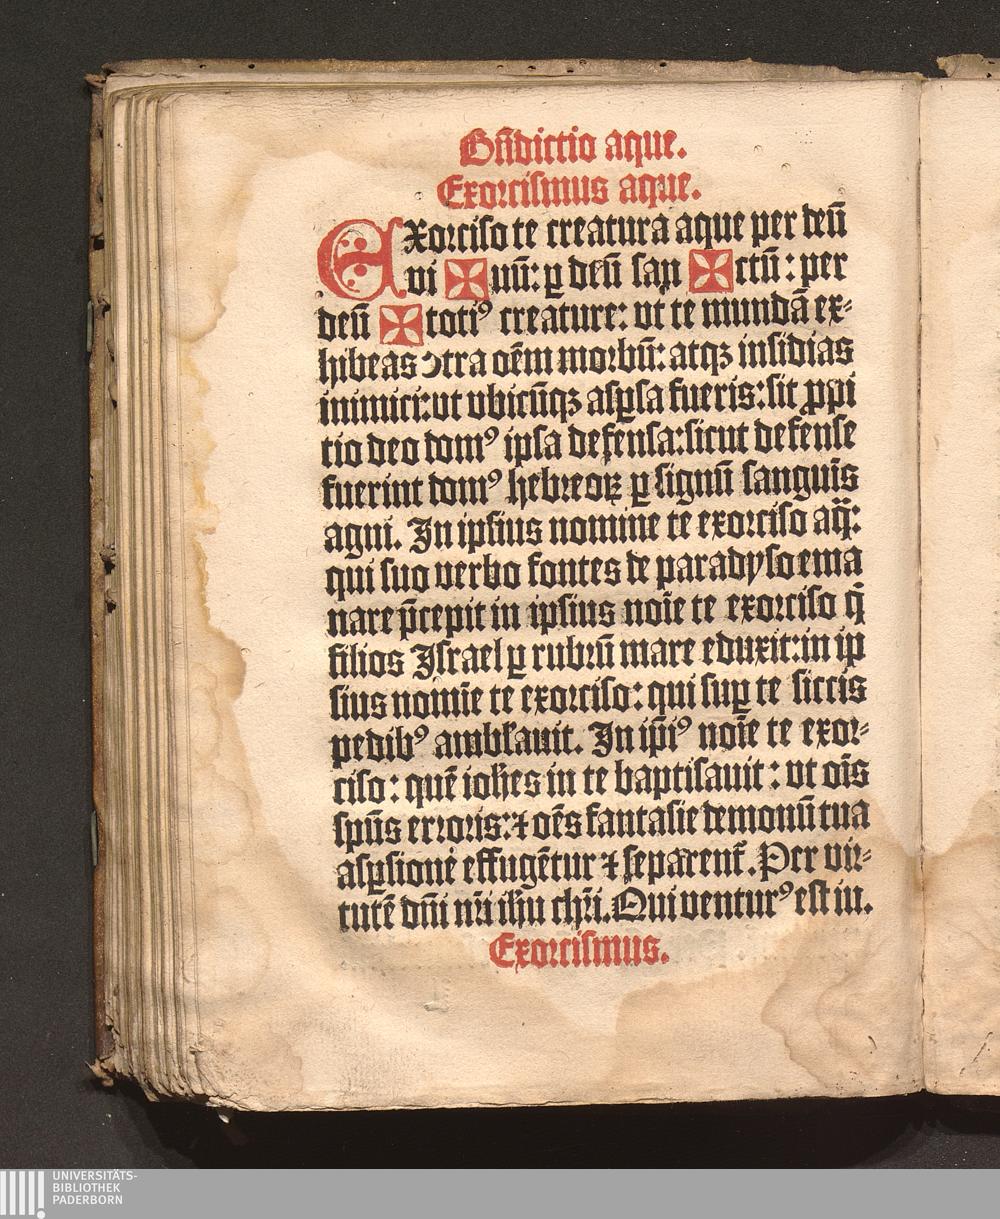 Bn̄dictio aque.
Exorcismus aque.
EXorciso te creatura aque per deū
vi ✠ uū: ꝑ deū san ✠ ctū: per
deū ✠ totiꝰ creature: vt te mundā ex⸗
hibeas ↄtra oēm morbū: atqꝫ insidias
inimici: vt vbicūqꝫ asꝑsa fueris: sit ꝓpi
tio deo domꝰ ipsa defensa: sicut defense
fuerint domꝰ hebreoꝝ ꝑ signū sanguīs
agni. In ipsius nomine te exorciso aq̄:
qui suo verbo fontes de paradyso ema
nare p̄cepit in ipsius noīe te exorciso q̄
filios Israel ꝑ rubrū mare eduxit: in ip
sius nomīe te exorciso: qui suꝑ te siccis
pedibꝰ ambłauit. In ip̄iꝰ noīe te exor⸗
ciso: quē ioħes in te baptisauit: vt oīs
spūs erroris: ⁊ oēs fantasie demonū tua
asꝑsione effugētur ⁊ separent̄. Per vir⸗
tutē dn̄i nr̄i iħu chr̄i. Qui venturꝰ est iu.
Exorcismus.
UNIVERSITÄTS-
BIBLIOTHEK
PADERBORN